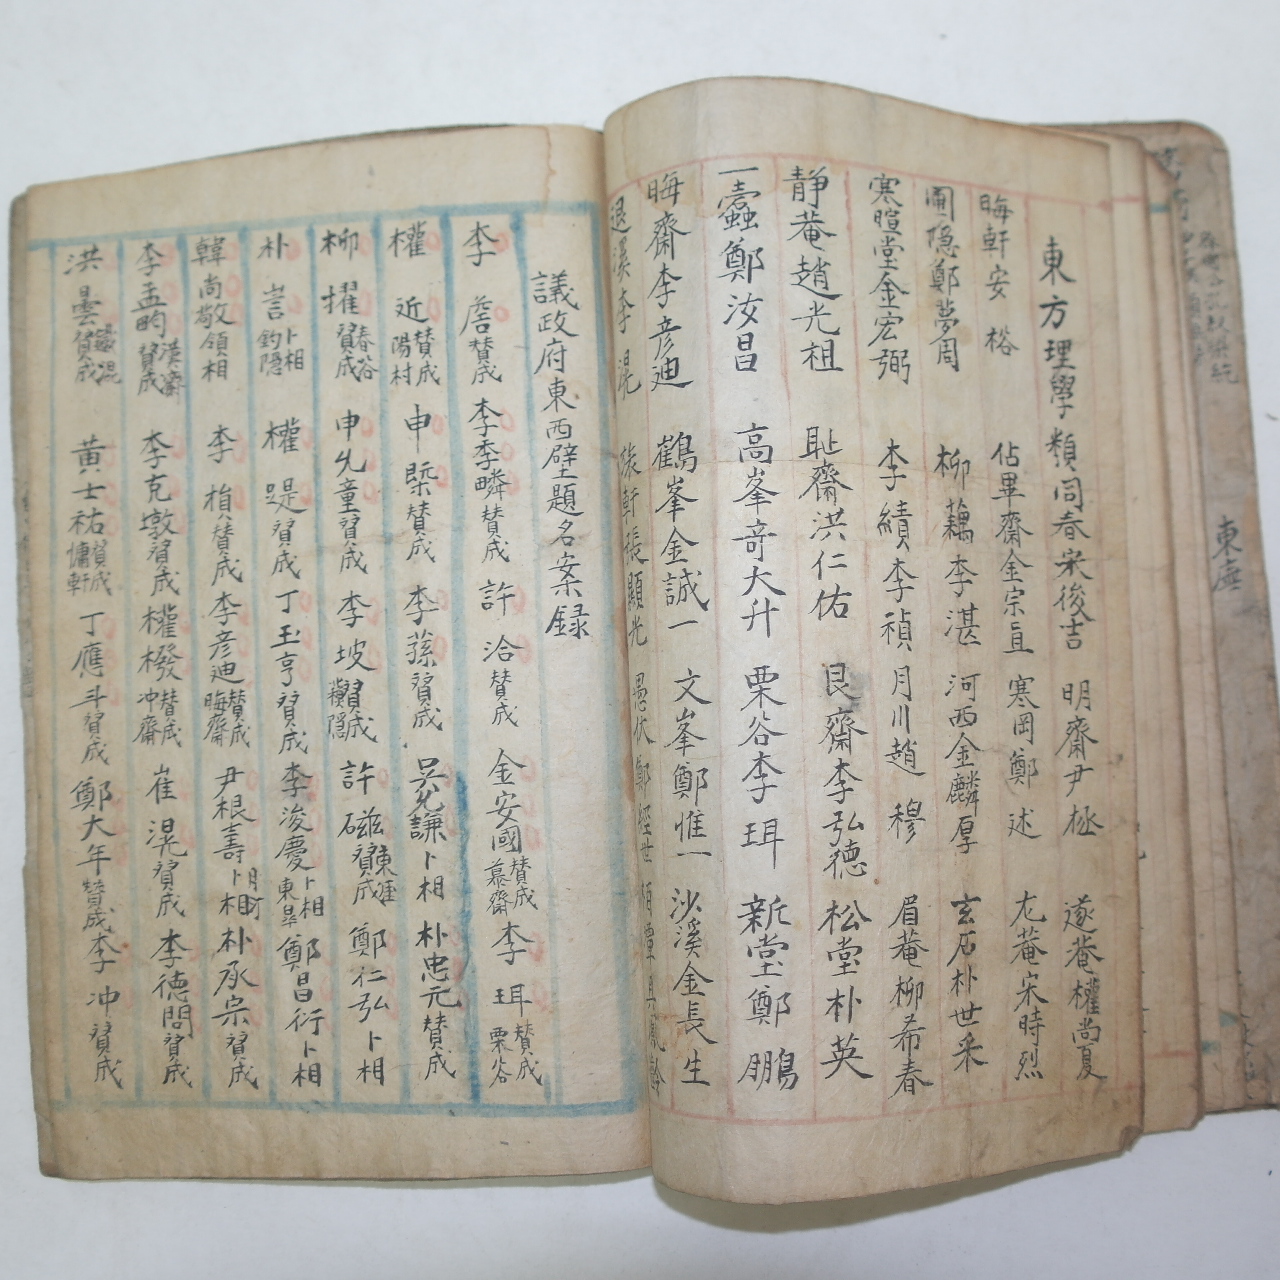 東方理學類 同春宋後吉 明齋尹極 遂菴權尚夏
晦軒安裕 佔畢齋金宗直 寒岡鄭述 尤菴宋時烈
圃隠鄭夢周 柳藕 李湛 河西金麟厚 玄石朴世釆
寒暄堂金宏弼 李績 李禎 月川趙穆 眉菴柳希春
靜菴趙光祖 耻齋洪仁佑 艮齋李弘德 松堂朴英
一蠹鄭汝昌 高峯竒大升 栗谷李珥 新堂鄭鵬
晦齋李彦迪 鶴峯金誠一 文峯鄭惟一 沙溪金長生
退溪李滉 張顯光 愚伏鄭經世
議政府東西壁題名案録
李詹贊成 李季疄贊成 許洽贊成 金安國贊成慕齋 李珥贊成栗谷
權近贊成陽村 申槩贊成 李蓀贊成 吳允謙卜相 朴忠元贊成
柳擢贊成春谷 申允童贊成 李坡贊成 許磁贊成東涯 鄭仁弘卜相
朴訔卜相釣隠 權踶贊成 丁玉亨贊成 李浚慶卜相東皐 鄭昌衍卜相
韓尚敬領相 李㮒贊成 李彦迪贊成晦齋 尹根壽卜相月汀 朴承宗贊成
李孟畇贊成漢齋 李克墩贊成 權橃贊成冲齋 崔滉贊成 李德問贊成
洪曇贊成 黄士祐贊成慵軒 丁應斗贊成 鄭大年贊成 李冲贊成
東廡